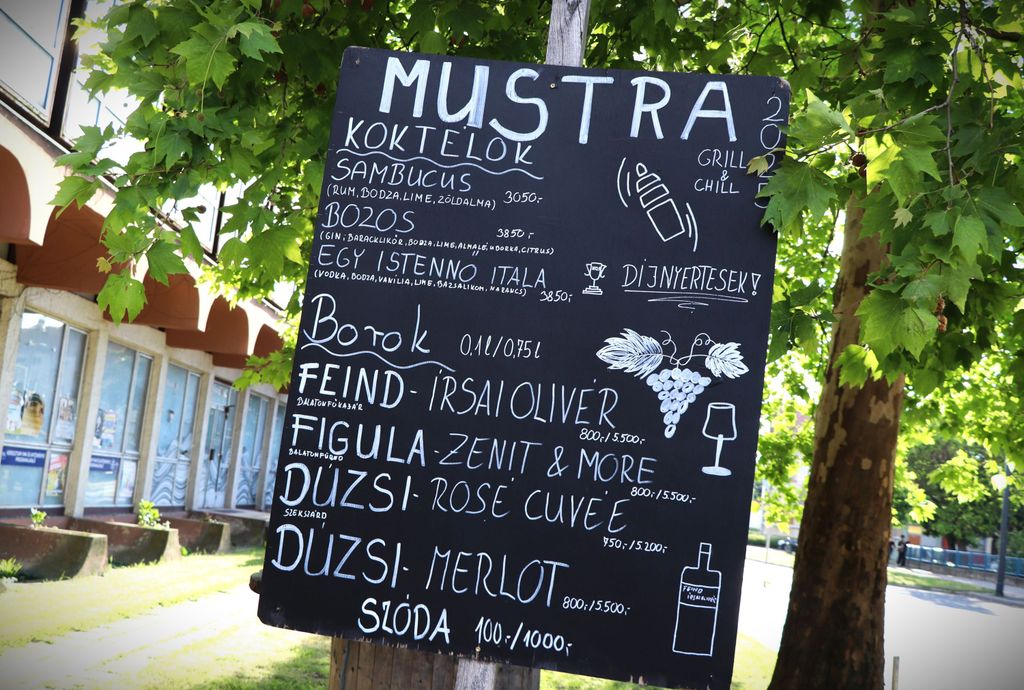 MUSTRA
GRILL
&
CHILL
KOKTÉLOK
SAMBUCUS
(RUM, BODZA, LIME, ZÖLDALMA) 3050.-
BOZÓS
3850.-
(GIN, BARACKLIKŐR, BODZA, LIME, ALMALÉ, UBORKA, CITRUS)
EGY ISTENNŐ ITALA
(VODKA, BODZA, VANILIA, LIME, BAZSALIKOM, NARANCS) 3850.-
DÍJNYERTESEK!
Borok 0,1l/0,75l
FEIND - IRSAI OLIVÉR
BALATONFŰKAJÁR
800.-/5.500.-
FIGULA - ZENIT & MORE
BALATONFÜRED
800.-/5.500.-
DÚZSI - ROSÉ CUVÉE
SZEKSZÁRD
750.-/5.200.-
DÚZSI - MERLOT
800.-/5.500.-
SZÓDA 100.-/1000.-
FEIND